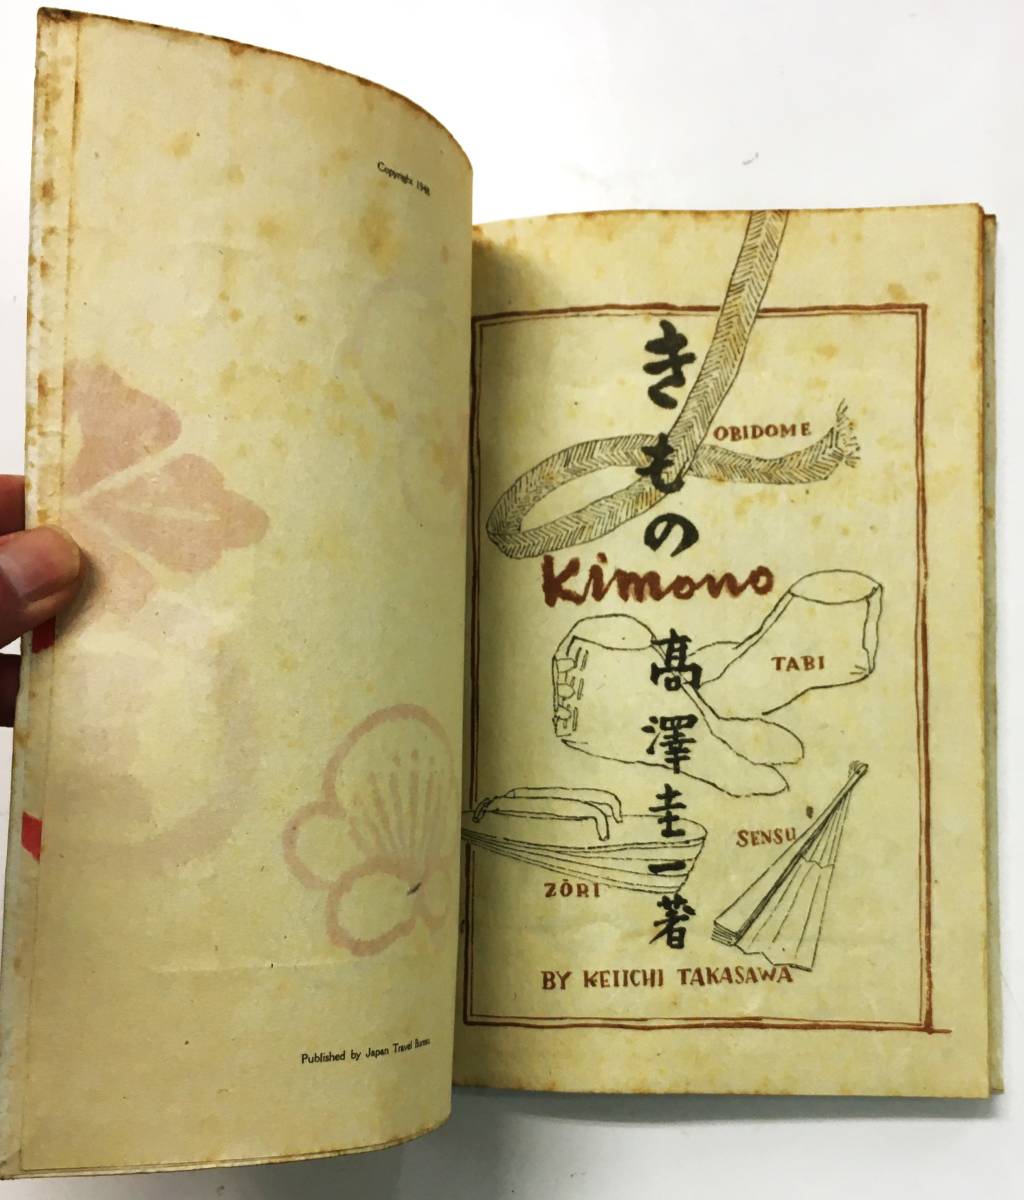 Copyright 1948
Published by Japan Travel Bureau
きもの
OBIDOME
Kimono
TABI
高澤圭一著
SENSU
ZŌRI
BY KEIICHI TAKASAWA